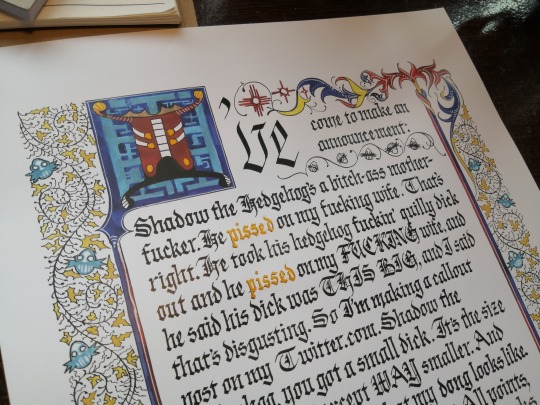 I've
come to make an
announcement:
Shadow the Hedgehog's a bitch-ass mother-
fucker. He pissed on my fucking wife. That's
right. He took his hedgehog fuckin' quilly dick
out and he pissed on my FUCKING wife, and
he said his dick was THIS BIG, and I said
that's disgusting. So I'm making a callout
post on my Twitter.com. Shadow the
you got a small dick. It's the size
except WAY smaller. And
what my dong looks like.
All points,